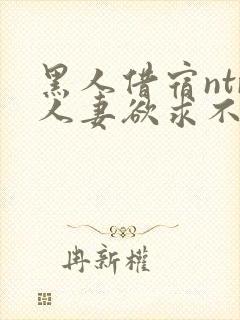 黑人借宿ntr
人妻欲求不
冉新權